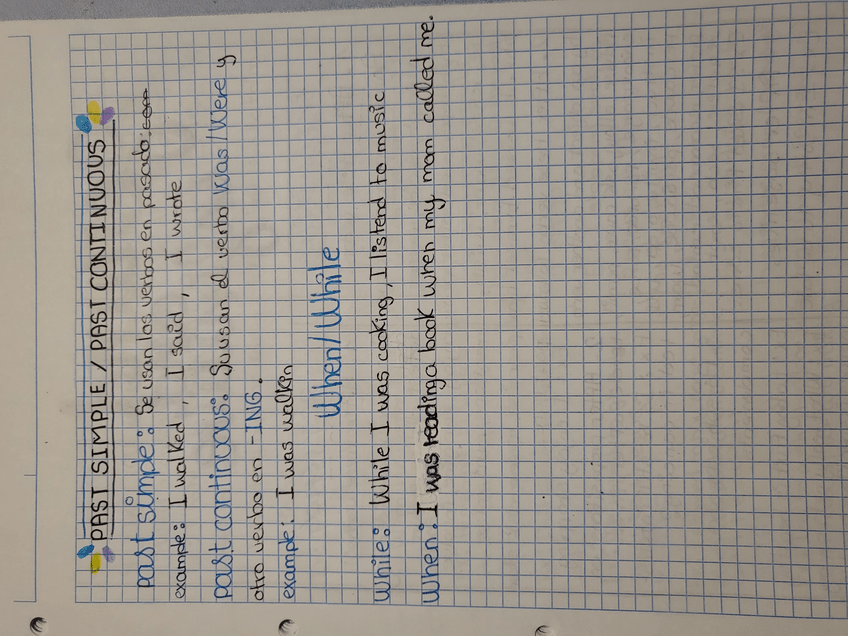 PAST SIMPLE / PAST CONTINUOUS
past simple: Se usan los verbos en pasado.
example: I walked, I said, I wrote
past continuous: Su usan el verbo Was/Were y
otro verbo en -ING.
example: I was walkin
When/While
While: While I was cooking, I listend to music
When: I was reading a book when my mom called me.